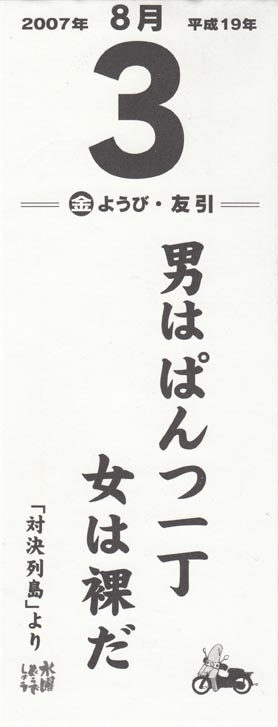 2007年 8月 平成19年
3
金ようび・友引
男はぱんつ一丁
女は裸だ
「対決列島」より
水曜
どうで
しょう